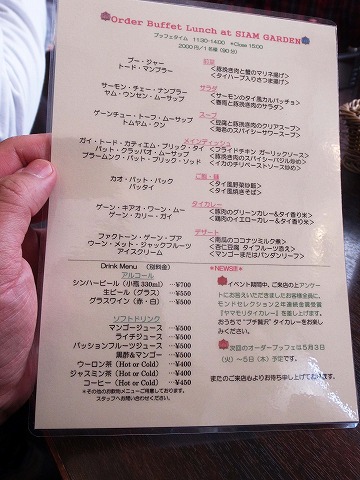 Order Buffet Lunch at SIAM GARDEN
ブッフェタイム 11:30-14:00 *Close 15:00
2000円/1名様 (90分)
前菜
プー・ジャー <豚挽き肉と蟹のマリネ揚げ>
トード・マンプラー <タイハーブ入りさつま揚げ>
サラダ
サーモン・チェー・ナンプラー <サーモンのタイ風カルパッチョ>
ヤム・ウンセン・ムーサップ <春雨と豚挽き肉のサラダ>
スープ
ゲーンチュー・トーフ・ムーサップ <豆腐と豚挽き肉のクリアスープ>
トムヤム・クン <海老のスパイシーサワースープ>
メインディッシュ
ガイ・トード・カティエム・プリック・タイ <フライドチキン ガーリックソース>
パット・クラッパオ・ムーサップ <豚挽き肉のスパイシーバジル炒め>
プラームンク・パット・プリック・ソッド <イカのチリペーストソース炒め>
ご飯・麺
カオ・パット・パック <タイ風野菜炒飯>
パッタイ <タイ風焼きそば>
タイカレー
ゲーン・キアオ・ワーン・ムー <豚肉のグリーンカレー&タイ香り米>
ゲーン・カリー・ガイ <鶏肉のイエローカレー&タイ香り米>
デザート
ファクトーン・ゲーン・ブアッ <南瓜のココナツミルク煮>
ウーン・メット・ジャックフルーツ <杏仁豆腐 タイフルーツ香え>
アイスクリーム <マンゴーまたはパンダンリーフ>
Drink Menu (別料金)
アルコール
シンハービール (小瓶 330ml) …¥700
生ビール (グラス) …¥550
グラスワイン (赤・白) …¥500
ソフトドリンク
マンゴージュース …¥500
ライチジュース …¥500
パッションフルーツジュース …¥500
黒酢&マンゴー …¥500
ウーロン茶 (Hot or Cold) …¥400
ジャスミン茶 (Hot or Cold) …¥400
コーヒー (Hot or Cold) …¥450
*その他のお飲物メニューご用意しております。
スタッフへお問い合わせください。
*NEWS!!*
イベント期間中、ご来店の上アンケー
トにお答えいただきましたお客様全員に、
モンドセレクション2年連続金賞受賞
『ヤマモリタイカレー』を差し上げます。
おうちで“プチ贅沢”タイカレーをお楽し
みください。
次回のオーダーブッフェは5月3日
(火)~5日(木)予定です。
またのご来店心よりお待ち申し上げております。